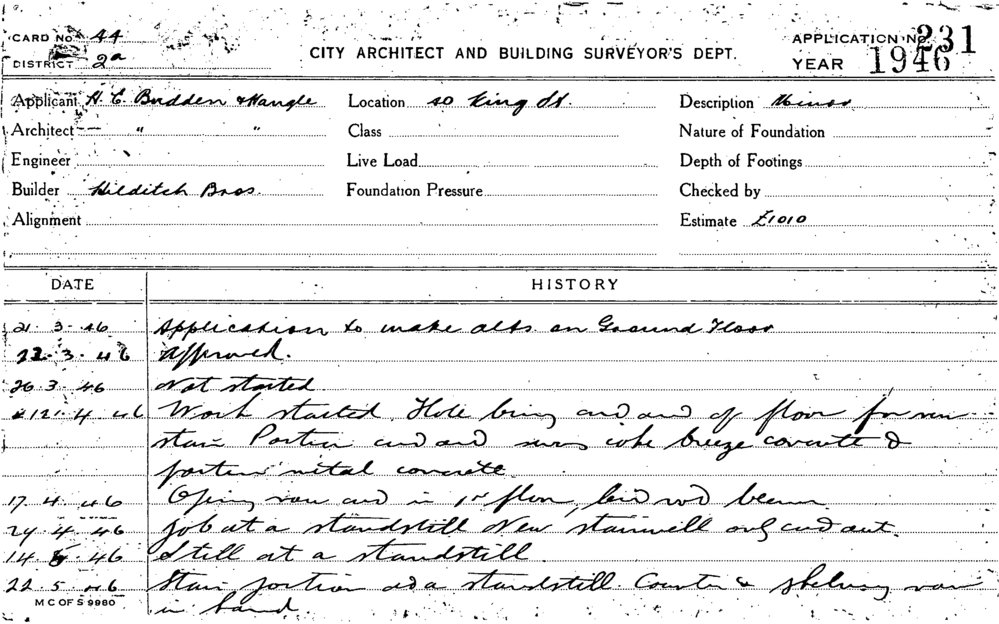 CARD No. 44
DISTRICT 2a
CITY ARCHITECT AND BUILDING SURVEYOR'S DEPT.
APPLICATION No. 231
YEAR 1946
Applicant H. E. Budden & Nangle
Location 50 King St.
Description Minor
Architect — " "
Class
Nature of Foundation
Engineer
Live Load
Depth of Footings
Builder Hilditch Bros.
Foundation Pressure
Checked by
Alignment
Estimate £1010
DATE HISTORY
21 3 - 46 Application to make alts. on Ground Floor
22 - 3 - 46 Approved.
26 3 - 46 Not started.
12 - 4 - 46 Work started. Hole being cut of floor for new
stair Portion coke breeze concrete &
portion metal concrete
17 - 4 - 46 in 1st floor,
24 - 4 - 46 Job at a standstill New stairwell only cut out.
14 5 - 46 Still at a standstill.
22 - 5 - 46 Stair portion at a standstill. Counter & shelving now
in hand.
M C OF S 9960